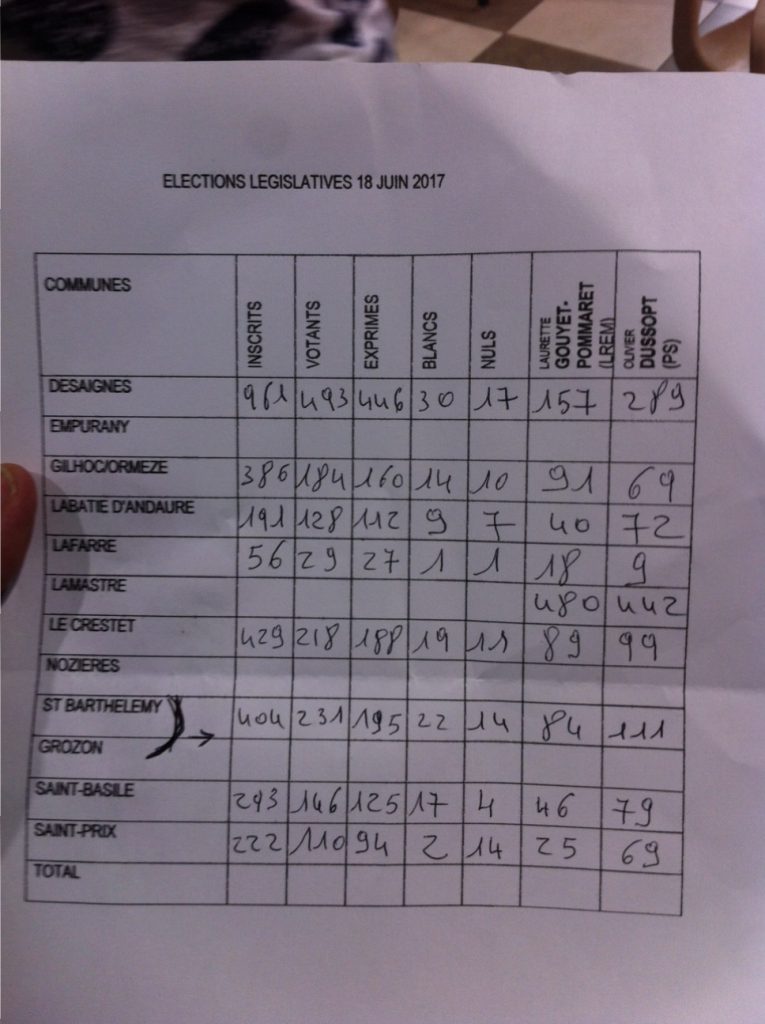 ELECTIONS LEGISLATIVES 18 JUIN 2017
COMMUNES INSCRITS VOTANTS EXPRIMES BLANCS NULS LAURETTE GOUYET-POMMARET (LREM) OLIVIER DUSSOPT (PS)
DESAIGNES 961 493 446 30 17 157 289
EMPURANY
GILHOC/ORMEZE 386 184 160 14 10 91 69
LABATIE D'ANDAURE 191 128 112 9 7 40 72
LAFARRE 56 29 27 1 1 18 9
LAMASTRE 480 442
LE CRESTET 429 218 188 19 11 89 99
NOZIERES
ST BARTHELEMY 404 231 195 22 14 84 111
GROZON
SAINT-BASILE 293 146 125 17 4 46 79
SAINT-PRIX 222 110 94 2 14 25 69
TOTAL